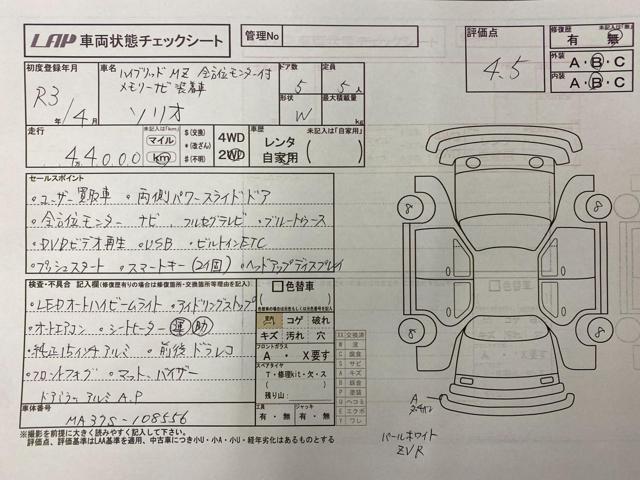 LAP 車両状態チェックシート
管理No
評価点 4.5
修復歴 未記入は「無」
有 無
外装 A・B・C
内装 A・B・C
初度登録年月 R3年/4月
車名 ハイブリッドMZ 全方位モニター付
メモリーナビ装着車
ソリオ
ドア数 5 定員 5人
形状 W 最大積載量 kg
走行 未記入は「km」
4万4000 マイル km
$(交換)
*(改ざん)
#(不明)
4WD
2WD
車歴 未記入は「自家用」
レンタ
自家用
セールスポイント
・ユーザー買取車 ・両側パワースライドドア
・全方位モニター ナビ フルセグテレビ ・ブルートゥース
・DVDビデオ再生 ・USB ・ビルトインETC
・プッシュスタート ・スマートキー(2個) ・ヘッドアップディスプレイ
検査・不具合 記入欄(修復歴有りの場合は修復箇所・交換箇所等理由を記入)
・LEDオートハイビームライト ・アイドリングストップ
・オートエアコン ・シートヒーター 運 助
・純正15インチアルミ ・前後ドラレコ
・フロントフォグ ・マット、バイザー
車体番号 MA37S-108556
□色替車
コゲ 破れ
キズ 汚れ 穴
フロントガラス
A ・ X要す
スペアタイヤ
T・修理kit・欠・ス
残り山:
工具 有・無
ジャッキ 有・無
XX 交換済
W 波
C 腐食
S サビ
A キズ
B 鈑金
P 塗装
U ヘコミ
E エクボ
Y ワレ
□色替車
8
8
8
8
A
パールホワイト
ZVR
※撮影を前提に大きく読みやすく記入して下さい。
評価点、評価基準はLAA基準を適用、中古車につき小U・小A・小U・経年劣化はあるものとする